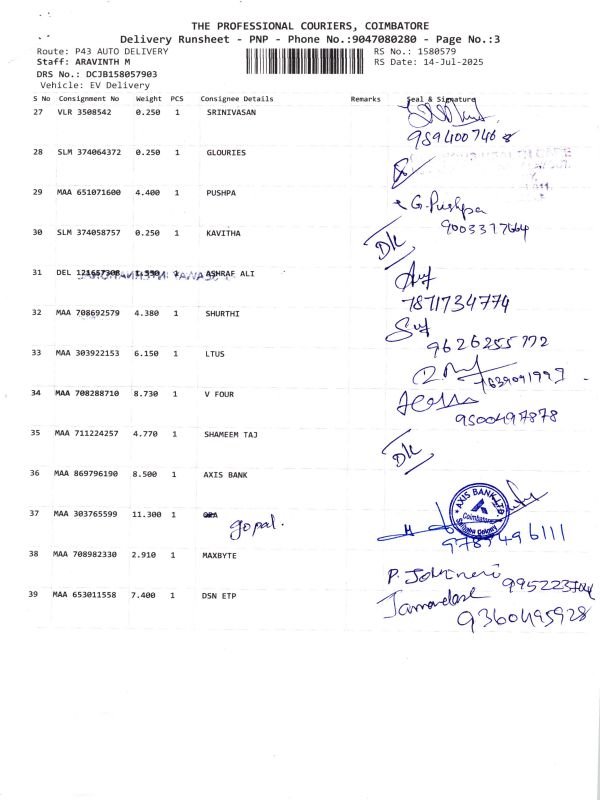 THE PROFESSIONAL COURIERS, COIMBATORE
Delivery Runsheet - PNP - Phone No.:9047080280 - Page No.:3
Route: P43 AUTO DELIVERY RS No.: 1580579
Staff: ARAVINTH M RS Date: 14-Jul-2025
DRS No.: DCJB158057903
Vehicle: EV Delivery
S No Consignment No Weight PCS Consignee Details Remarks Seal & Signature
27 VLR 3508542 0.250 1 SRINIVASAN
9894007468
28 SLM 374064372 0.250 1 GLOURIES
29 MAA 651071600 4.400 1 PUSHPA G.Pushpa
9003377664
30 SLM 374058757 0.250 1 KAVITHA DK
31 DEL 121657308 1.590 1 ASHRAF ALI
7871734774
32 MAA 708692579 4.380 1 SHURTHI
9626255772
33 MAA 303922153 6.150 1 LTUS
7639091997
34 MAA 708288710 8.730 1 V FOUR
9500497878
35 MAA 711224257 4.770 1 SHAMEEM TAJ DK
36 MAA 869796190 8.500 1 AXIS BANK
AXIS BANK LTD.
Coimbatore
37 MAA 303765599 11.300 1 gopal.
38 MAA 708982330 2.910 1 MAXBYTE
39 MAA 653011558 7.400 1 DSN ETP
9360495928